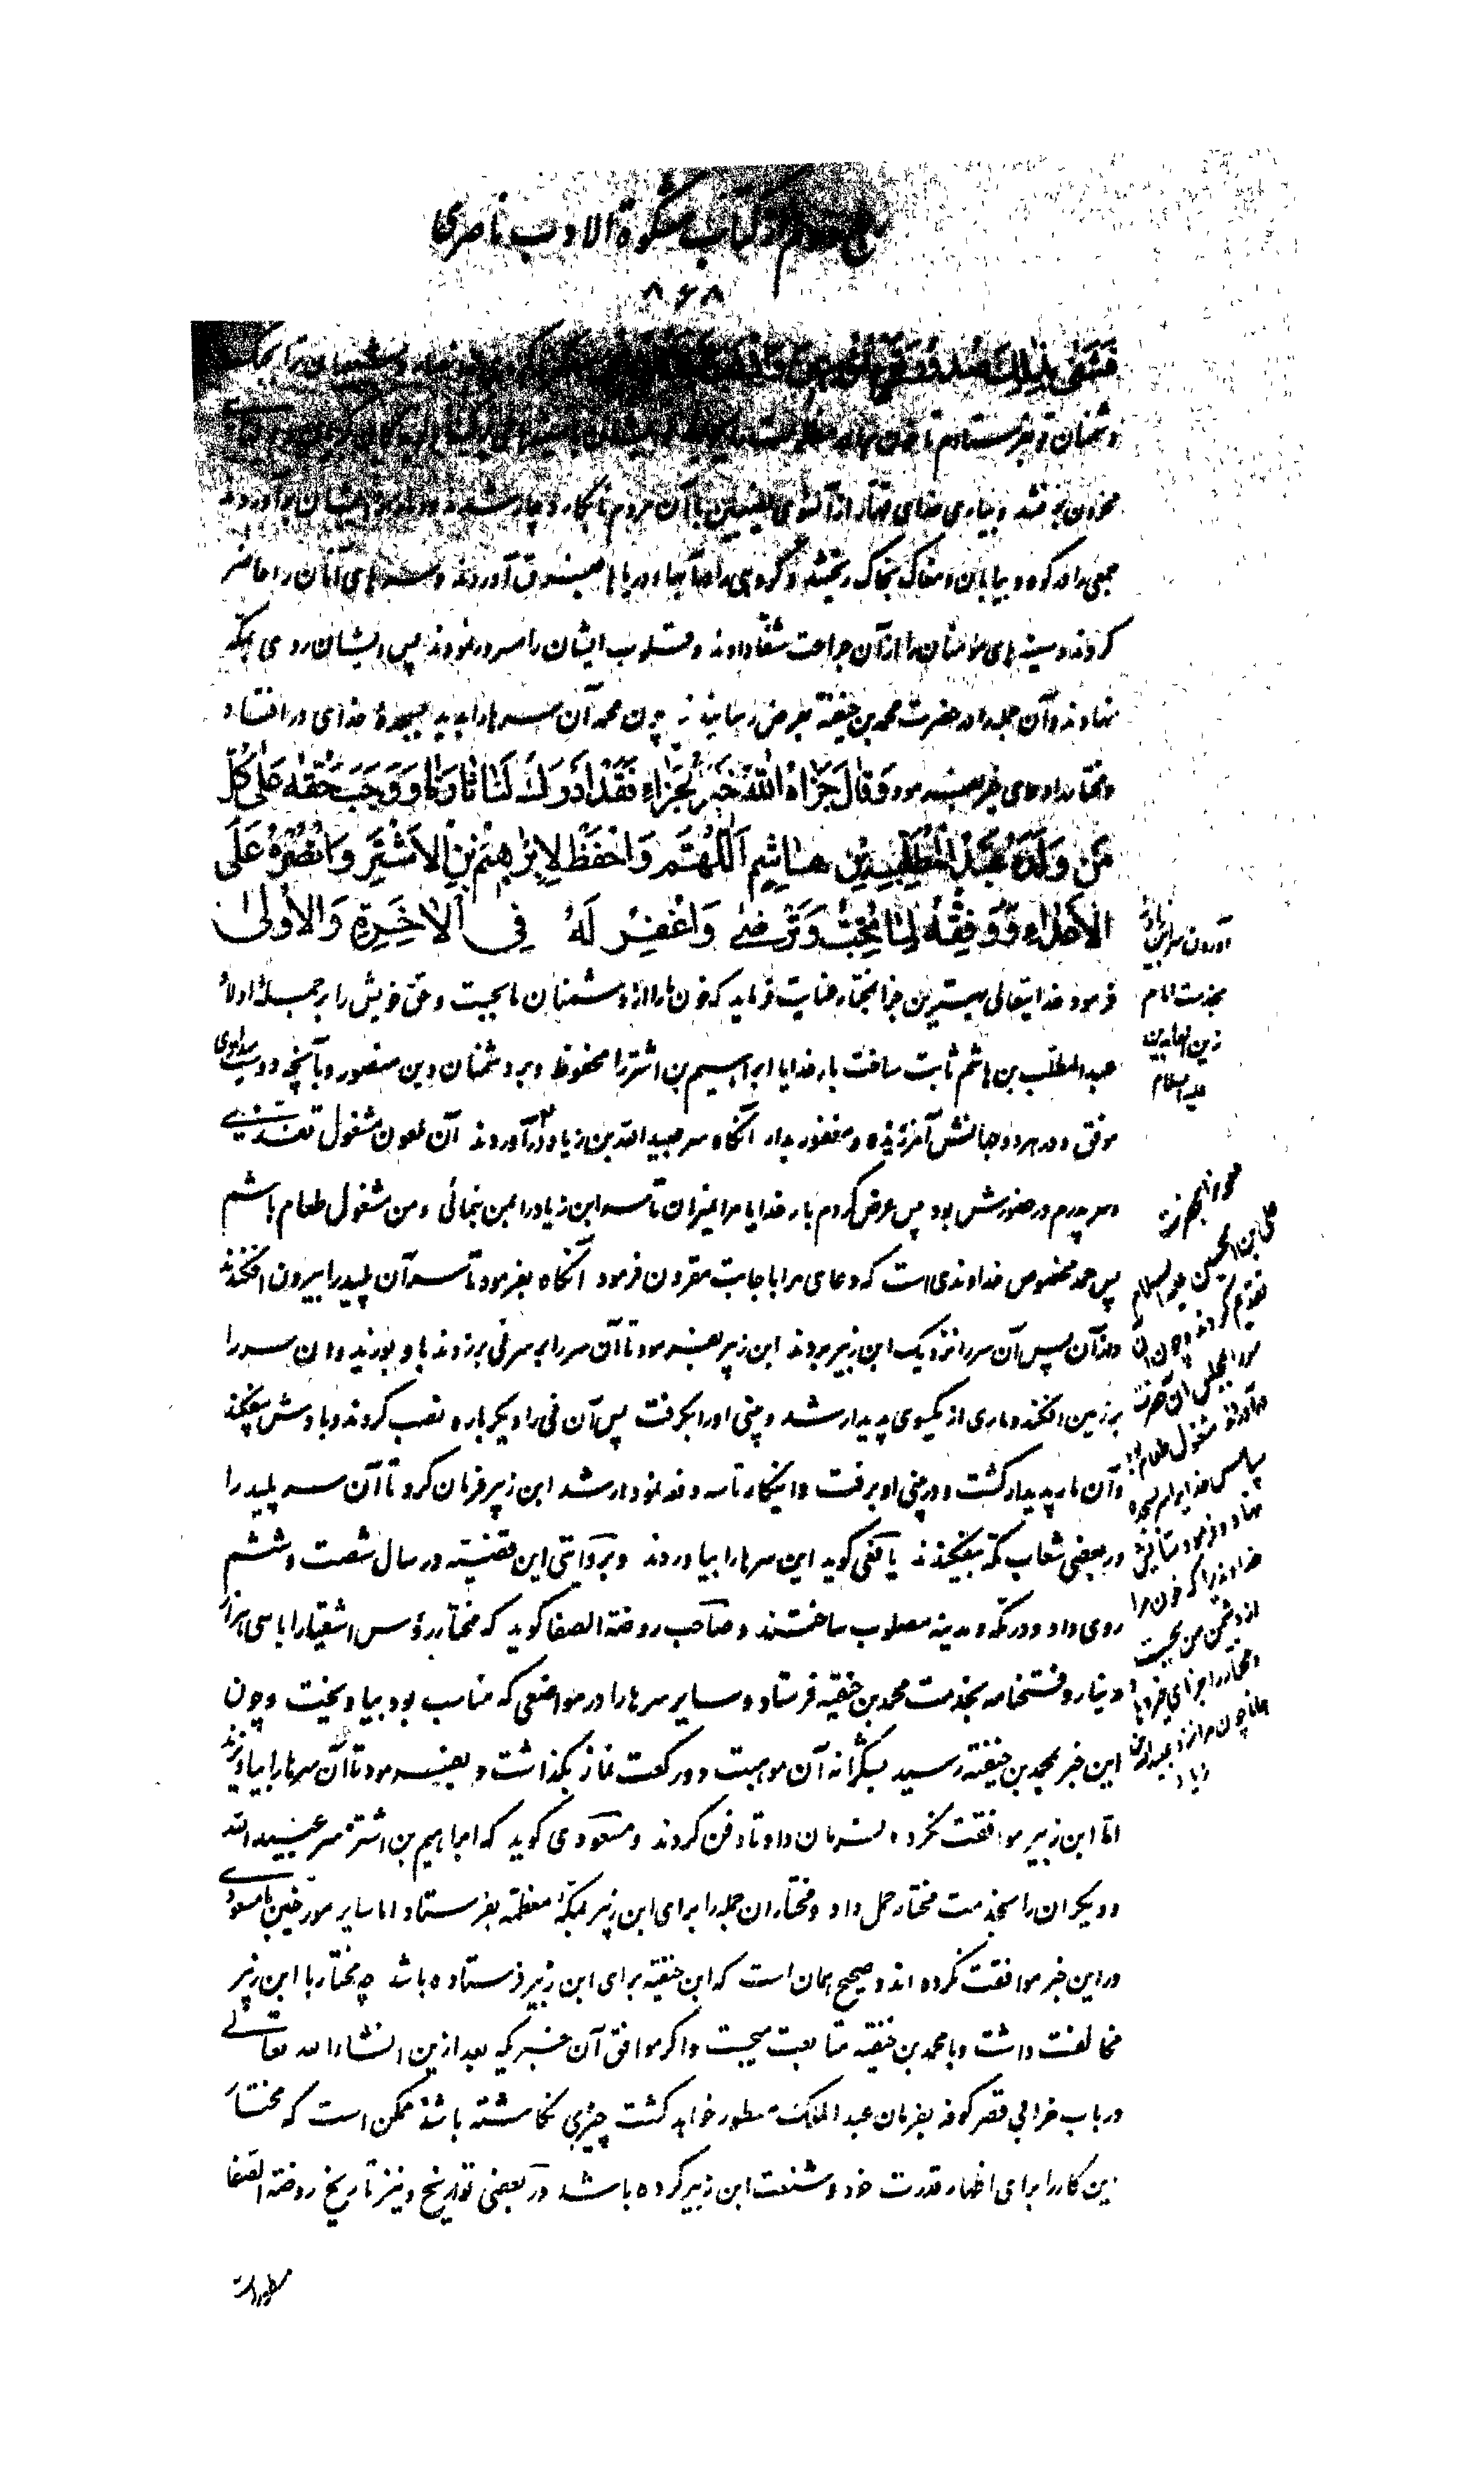 ربع دوم از کتاب مشکوة الادب ناصری
۸۶۸
فَشَفیٰ بِذٰلِكَ صُدُورَ قَوْمٍ مُؤْمِنینَ
دشمنان تو بفرستادم تا خون برادر مظلومت
محزون برفتند و بیاری خدای قهار از آنسوی نصیبین با آن مردم نابکار دچار شدند و دمار از ایشان برآوردند
جمعی را در کوه و بیابان و مغاک بخاک ریختند و گروهی را در آبها و دریاها بغرق آوردند و سرهای آنان را حاضر
کردند و سینه های مؤمنان را از آن جراحت شفا دادند و قلوب ایشان را مسرور نمودند پس ایشان روی بمکّه
نهادند و آن جمله را در حضرت محمد بن حنفیّه بعرض رسانیدند چون محمد آن سرها را بدید بسجدهٔ خدای درافتاد
و مختار را دعای خیر بفرمود وَقٰالَ جَزٰاهُ اللّٰهُ خَیْرَ الْجَزٰاءِ فَقَدْ اَدْرَكَ لَنٰا ثٰارَنٰا وَ وَجَبَ حَقُّهُ عَلیٰ كُلِّ
مَنْ وَلَدَهُ عَبْدُ الْمُطَّلِبِ بْنِ هٰاشِمٍ اَللّٰهُمَّ وَاحْفَظْ لِاِبْرٰاهیمَ بْنِ الْاَشْتَرِ وَانْصُرْهُ عَلَی
الْاَعْدٰاءِ وَ وَفِّقْهُ لِمٰا تُحِبُّ وَتَرْضیٰ وَاغْفِرْ لَهُ فِی الْاٰخِرَةِ وَالْاُولیٰ
فرمود خدایتعالی بهترین جزا بمختار عنایت فرماید که خون ما را از دشمنان ما بجست و حق خویش را بر جمله اولاد
عبدالمطلب بن هاشم ثابت ساخت بار خدایا ابراهیم بن اشتر را محفوظ و بر دشمنان دین منصور و بآنچه دوست میداری
موفق و در هر دو جهانش آمرزیده و مغفور بدار آنگاه سر عبیدالله بن زیاد را درآوردند آن ملعون مشغول تغذی
و سر پدرم در حضورش بود پس عرض کردم بار خدایا مرا نمیران تا سر ابن زیاد را بمن بنمائی و من مشغول طعام باشم
پس حمد مخصوص خداوندی است که دعای مرا باجابت مقرون فرمود آنگاه بفرمود تا سر آن پلید را بیرون افکندند
و از آن پس آن سر را نزدیک ابن زبیر بردند ابن زبیر بفرمود تا آن سر را بر سر نی برزدند باد بوزید و آن سر را
بر زمین افکند و ماری از یکسوی پدیدار شد و بینی او را بگرفت پس آن نی را دیگر باره نصب کردند و بادش بیفکند
و آن مار پدیدار گشت و در بینی او برفت و اینکار تا سه دفعه نمودار شد ابن زبیر فرمان کرد تا آن سر پلید را
در بعضی شعاب مکّه بیفکندند یافعی گوید این سرها را بیاوردند و بروایتی این قضیّه در سال شصت و ششم
روی داد و در مکّه و مدینه مصلوب ساختند و صاحب روضة الصفا گوید که مختار رؤس اشقیا را با سی هزار
دینار و فتحنامه بخدمت محمد بن حنفیه فرستاد و سایر سرها را در مواضعی که مناسب بود بیاویخت و چون
این خبر بمحمد بن حنفیّه رسید بشکرانه آن موهبت دو رکعت نماز بگذاشت و بفرمود تا آن سرها را بیاویزند
امّا ابن زبیر موافقت نکرد و فرمان داد تا دفن کردند و مسعودی گوید که ابراهیم بن اشتر سر عبیدالله
و دیگران را بخدمت مختار حمل داد و مختار آن جمله را برای ابن زبیر بمکّهٔ معظمّه بفرستاد اما سایر مورخین با مسعودی
در این خبر موافقت نکرده اند و صحیح همان است که ابن حنفیّه برای ابن زبیر فرستاده باشد چه مختار با ابن زبیر
مخالفت داشت و با محمد بن حنفیّه متابعت میجست و اگر موافق آن خبریکه بعد از این انشاءالله تعالی
در باب خرابی قصر کوفه بفرمان عبدالملک مسطور خواهد گشت چیزی نگاشته باشد ممکن است که مختار
این کار را برای اظهار قدرت خود و شنعت ابن زبیر کرده باشد در بعضی تواریخ و نیز تاریخ روضة الصفا
مسطور است
آوردن سر ابن زیاد
بخدمت امام
زین العابدین
علیه السلام
علی بن الحسین علیه السلام
تقدیم کردند و چون آن
سر را بمجلس آن حضرت
درآوردند مشغول طعام بود
نهاد و فرمود ستایش
خداوندی را که خون مرا
از دشمن من بجست
و مختار را جزای خیر دهاد